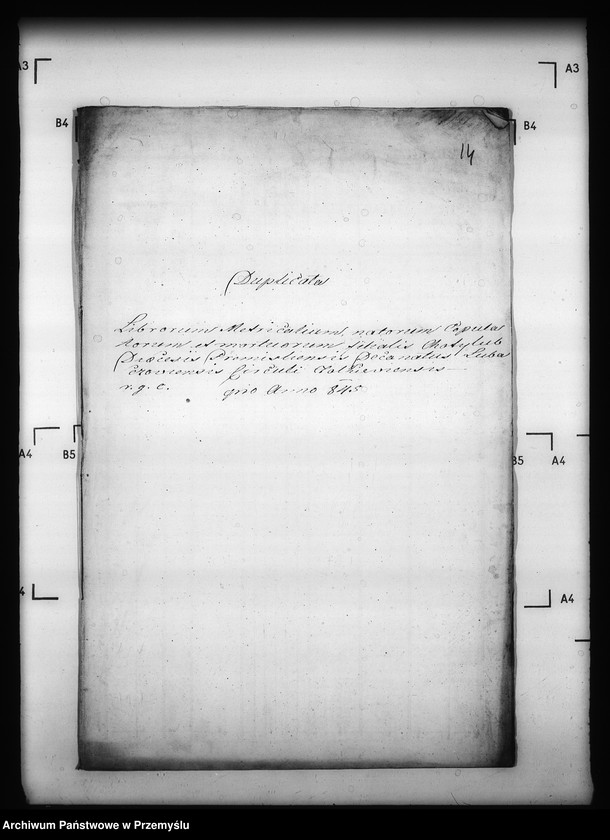 A3
A3
B4
B4
14
Duplicata
Librorum Metricalium, natorum Copula
torum et mortuorum filialis Chotylub
Diœcesis Premisliensis Decanatus Luba
czoviensis Circuli Zolkiewiensis
r. g. c. pro Anno 845
A4
B5
B5
A4
4
A4
Archiwum Państwowe w Przemyślu